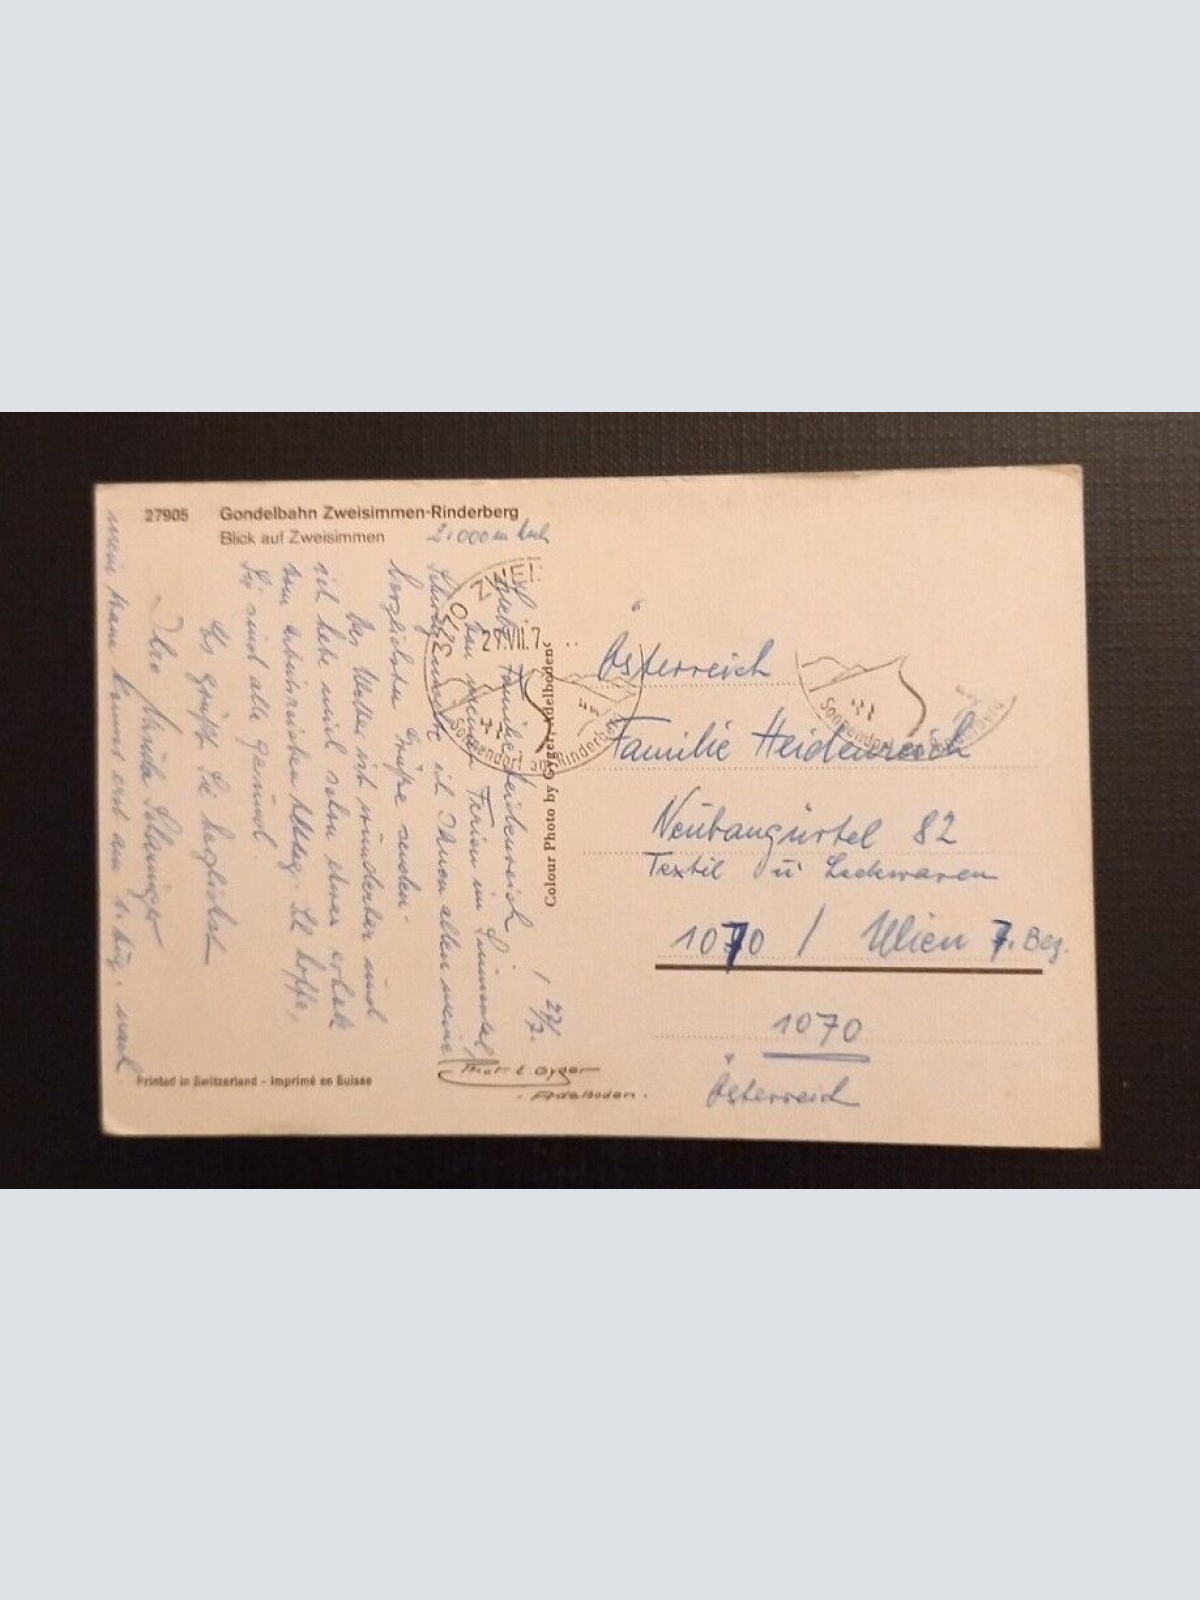 27905 Gondelbahn Zweisimmen-Rinderberg
Blick auf Zweisimmen
2.000 m hoch
27/7.
Liebe Familie Heidenreich!
meinen Ferien im Simmental
ich Ihnen allen meine
herzlichsten Grüße senden.
Das Wetter ist wunderbar und
ich habe mich schon etwas erholt
vom arbeitsreichen Alltag. Ich hoffe,
Sie sind alle gesund.
Es grüßt Sie herzlichst
Ihre
mein Mann kommt erst am 1. Aug. nach
ZWEI
29.VII.7
Sonnendorf am Rinderberg
Colour Photo by Gyger, Adelboden
Österreich
Familie Heidenreich
Sonnendorf am Rinderberg
Neubaugürtel 82
Textil u Lederwaren
1070 / Wien 7. Bez.
1070
Österreich
Printed in Switzerland - Imprimé en Suisse
Phot E Gyger
Adelboden.